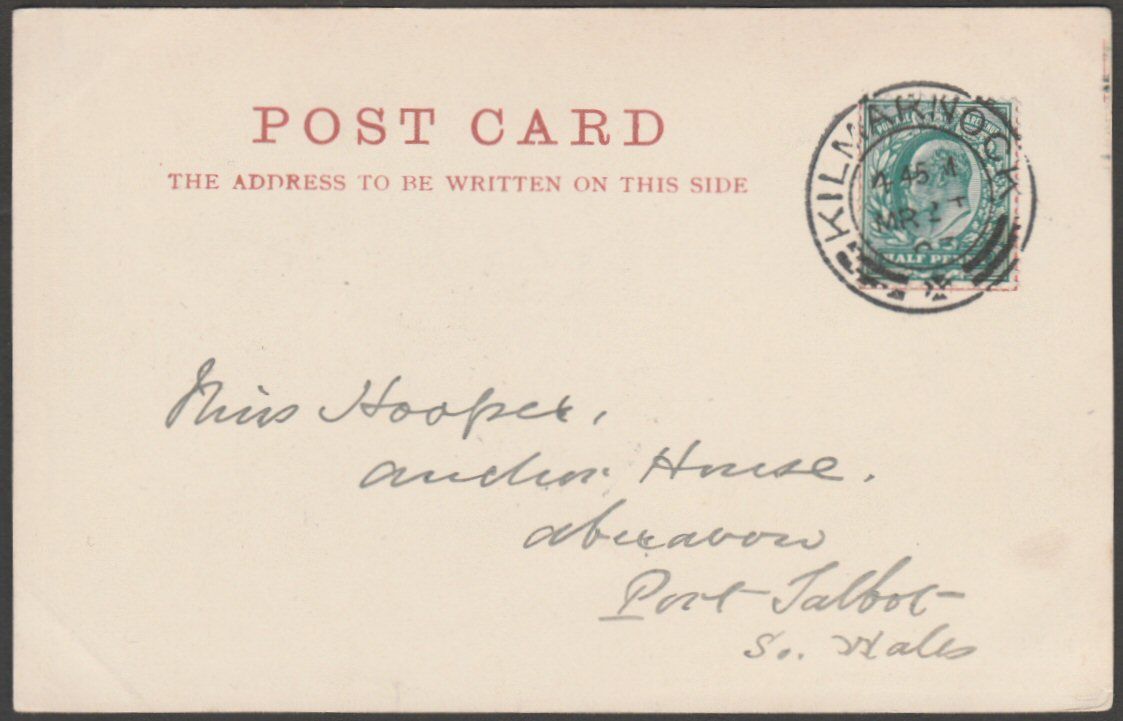 POST CARD
THE ADDRESS TO BE WRITTEN ON THIS SIDE
KILMARNOCK
4 45 M
MR 2
03
HALF PENNY
Miss Hooper,
Anchor House.
Aberavon
Port Talbot
So. Wales